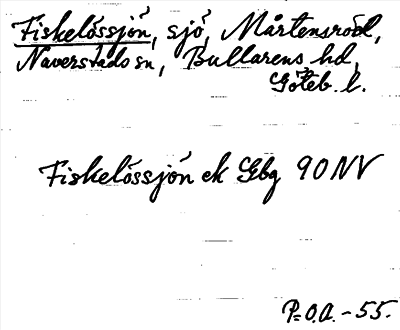 Fiskelössjön, sjö, Mårtensröd,
Naverstads sn, Bullarens hd,
Göteb. l.
Fiskelössjön ek Gbg 90 NV
P.O.A. - 55.